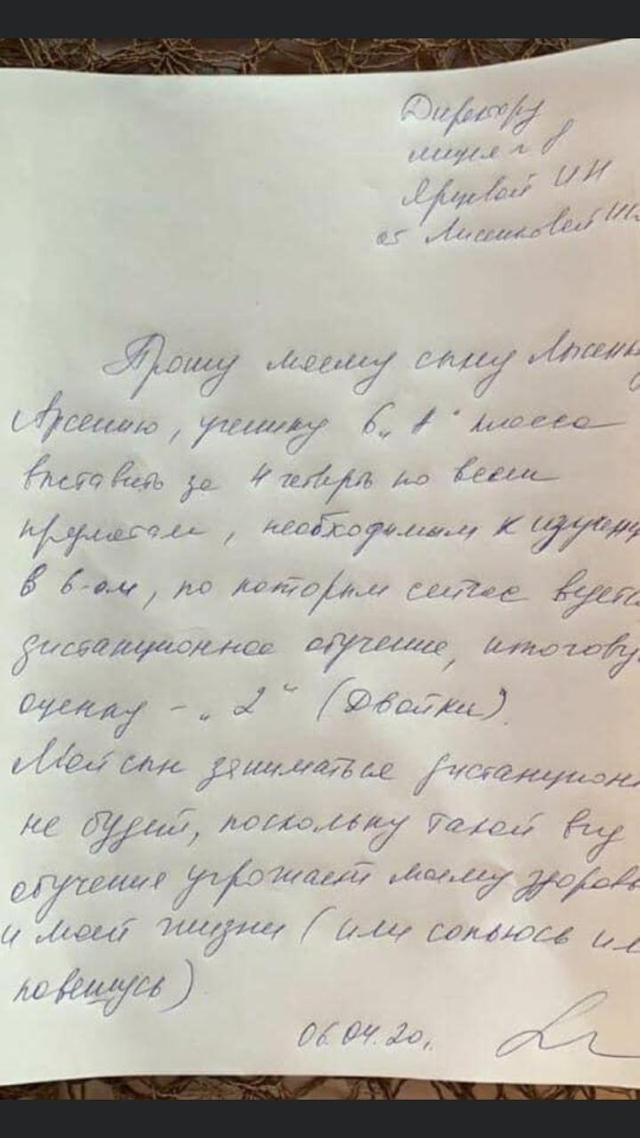 Директору
лицея № 8
Ярцевой ИН
от Лысенковой
Прошу моему сыну Лысеньк
Арсению, ученику 6 „А" класса
выставить за 4 четверть по всем
предметам, необходимым к изучени
в 6-ом, по которым сейчас ведется
дистанционное обучение, итогову
оценку - „2" (Двойки).
Мой сын заниматься дистанционн
не будет, поскольку такой вид
обучение угрожает моему здоровь
и моей жизни (или сопьюсь ил
повешусь)
06.04.20г.